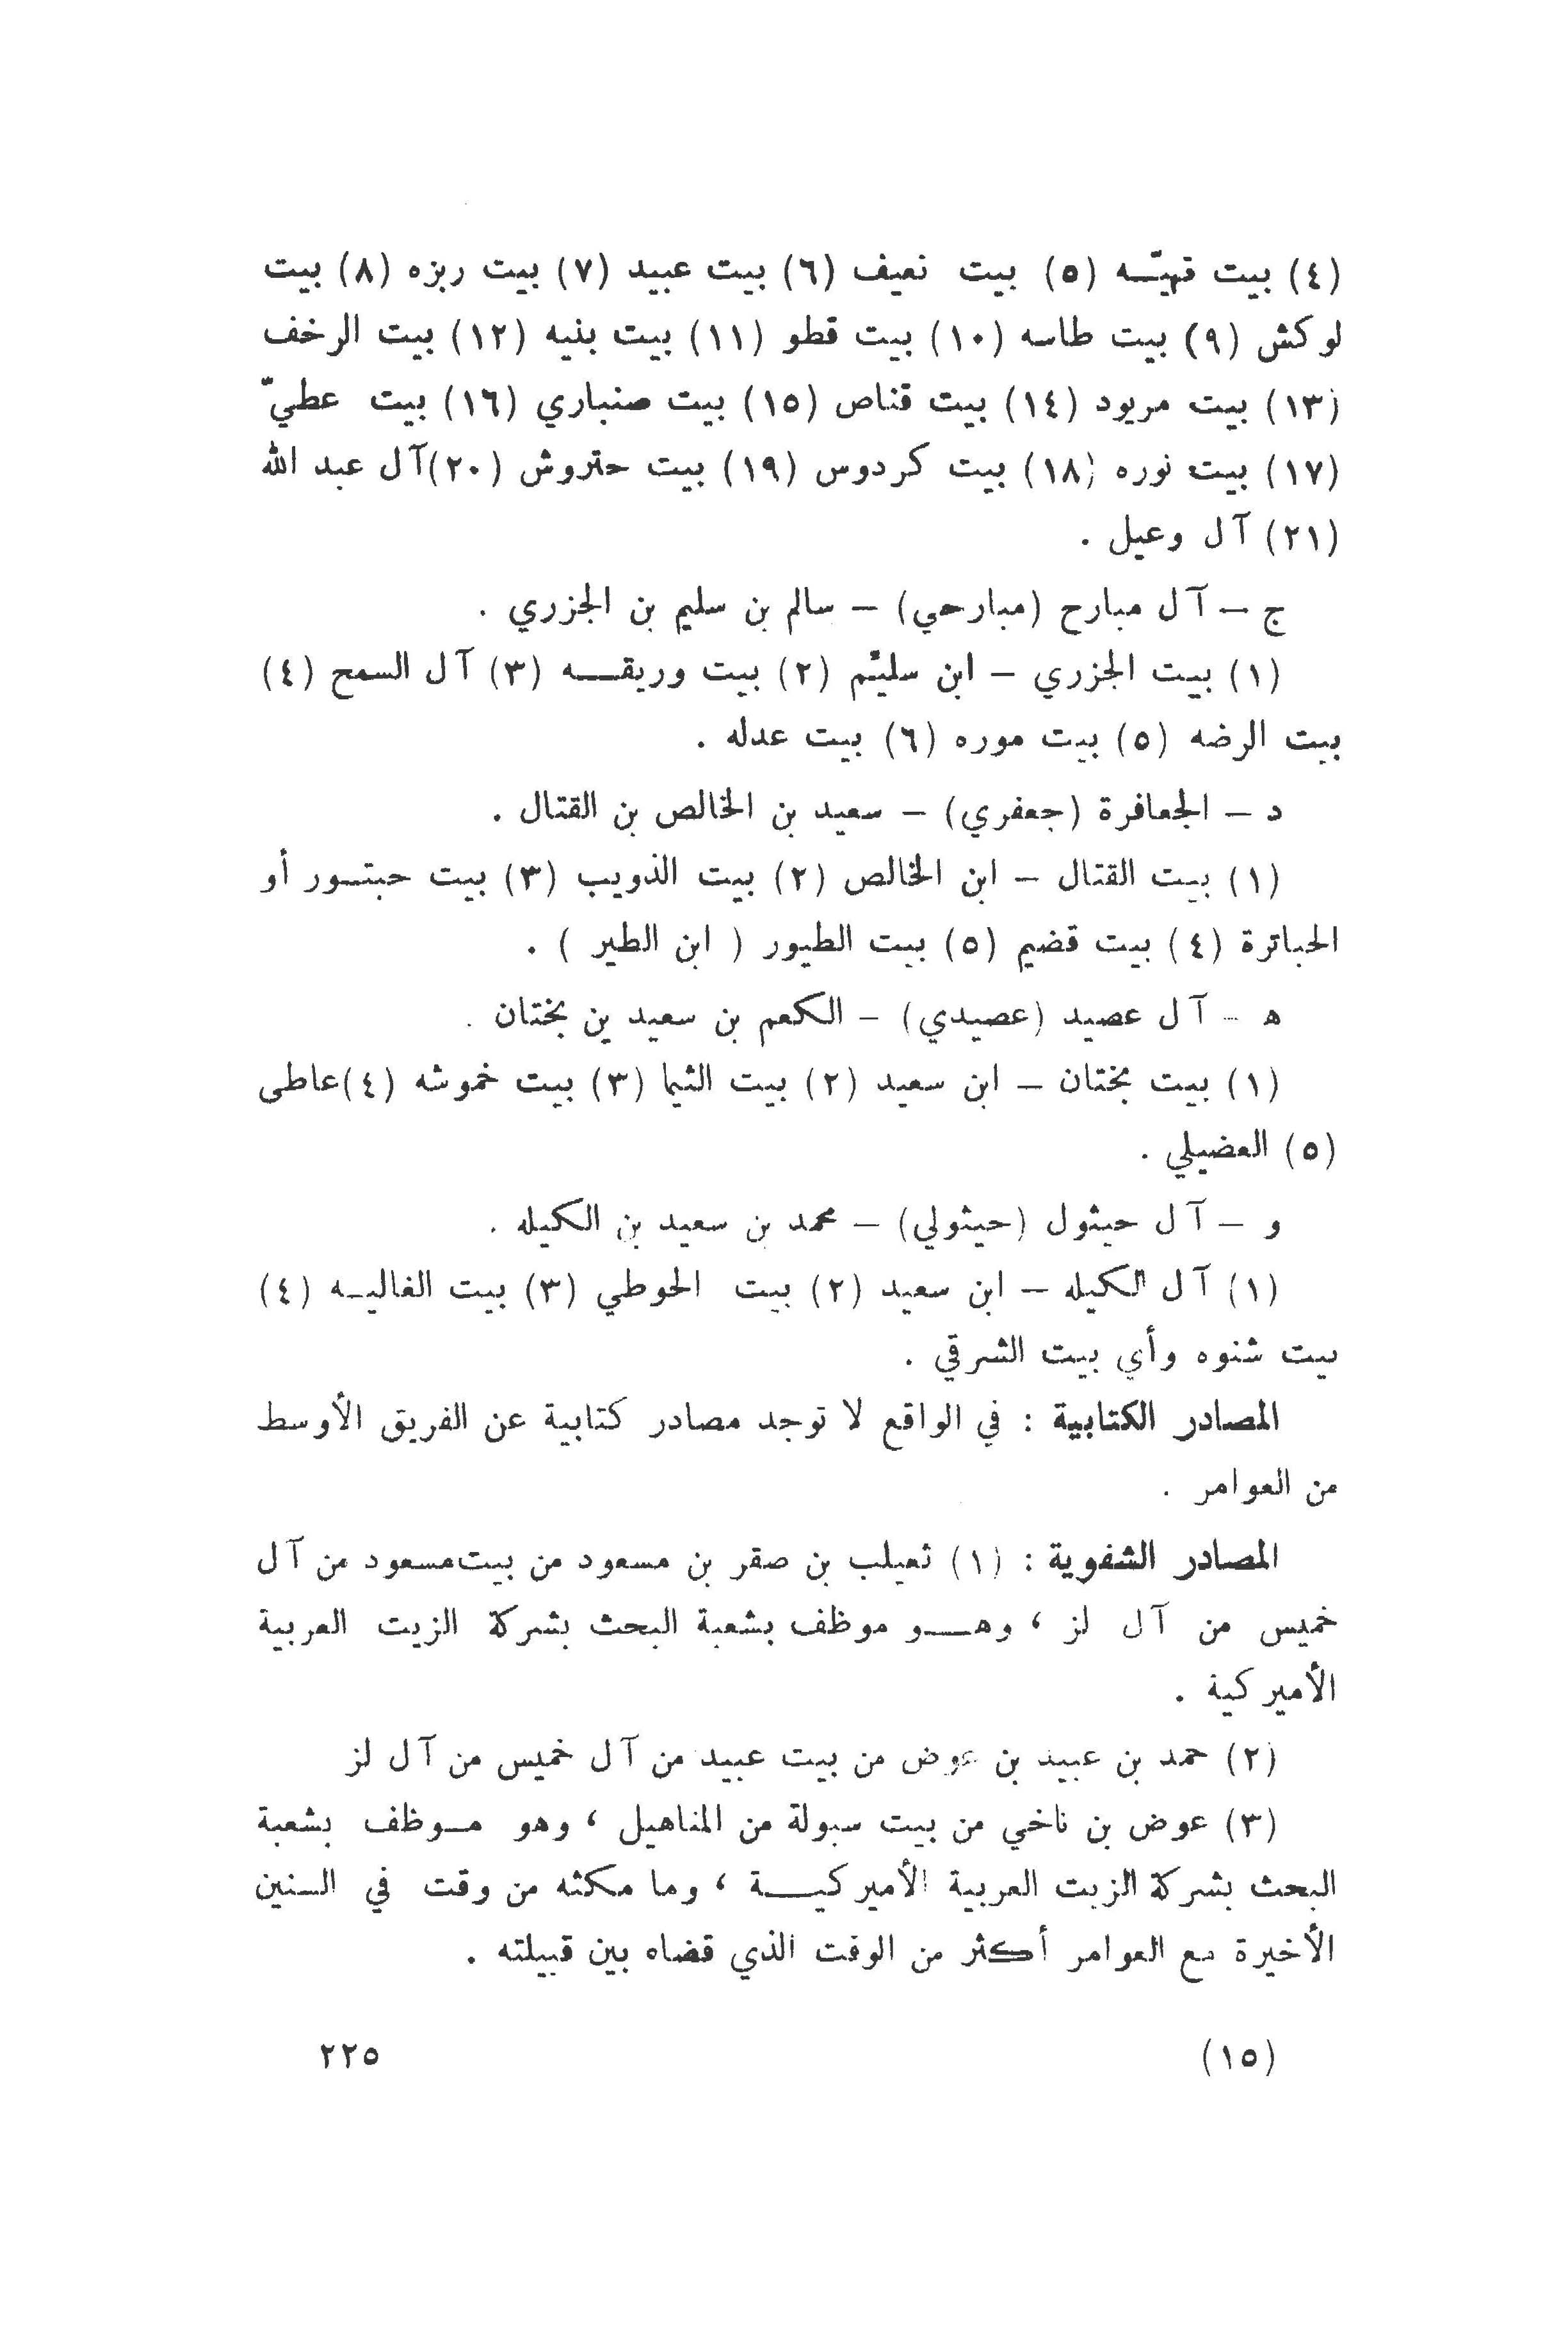 (٤) بيت قهيّـــه (٥) بيت نعيف (٦) بيت عبيد (٧) بيت ربزه (٨) بيت
لوكش (٩) بيت طاسه (١٠) بيت قطو (١١) بيت بنيه (١٢) بيت الرخف
(١٣) بيت مريود (١٤) بيت قناص (١٥) بيت صنباري (١٦) بيت عطيّ
(١٧) بيت نوره (١٨) بيت كردوس (١٩) بيت حتروش (٢٠)آل عبد الله
(٢١) آل وعيل .
ج – آل مبارح (مبارحي) – سالم بن سليم بن الجزري .
(١) بيت الجزري – ابن سليّم (٢) بيت وريقـــه (٣) آل السمح (٤)
بيت الرضه (٥) بيت موره (٦) بيت عدله .
د – الجعافرة (جعفري) – سعيد بن الخالص بن القتال .
(١) بيت القتال – ابن الخالص (٢) بيت الذويب (٣) بيت حبتــور أو
الحباترة (٤) بيت قضيم (٥) بيت الطيور ( ابن الطير ) .
ه – آل عصيد (عصيدي) – الكعم بن سعيد بن بختان .
(١) بيت بختان – ابن سعيد (٢) بيت الثيا (٣) بيت خموشه (٤)عاطى
(٥) العضيلي .
و – آل حيثول (حيثولي) – محمد بن سعيد بن الكيله .
(١) آل الكيله – ابن سعيد (٢) بيت الحوطي (٣) بيت الغاليـه (٤)
بيت شنوه وأي بيت الشرقي .
المصادر الكتابية : في الواقع لا توجد مصادر كتابية عن الفريق الأوسط
من العوامر .
المصادر الشفوية : (١) ثعيلب بن صقر بن مسعود من بيت مسعود من آل
خميس من آل لز ، وهـــو موظف بشعبة البحث بشركة الزيت العربية
الأميركية .
(٢) حمد بن عبيد بن عوض من بيت عبيد من آل خميس من آل لز
(٣) عوض بن ناخي من بيت سبولة من المناهيل ، وهو مـوظف بشعبة
البحث بشركة الزيت العربية الأميركيـــة ، وما مكثه من وقت في السنين
الأخيرة مع العوامر أكثر من الوقت الذي قضاه بين قبيلته .
(١٥) ٢٢٥